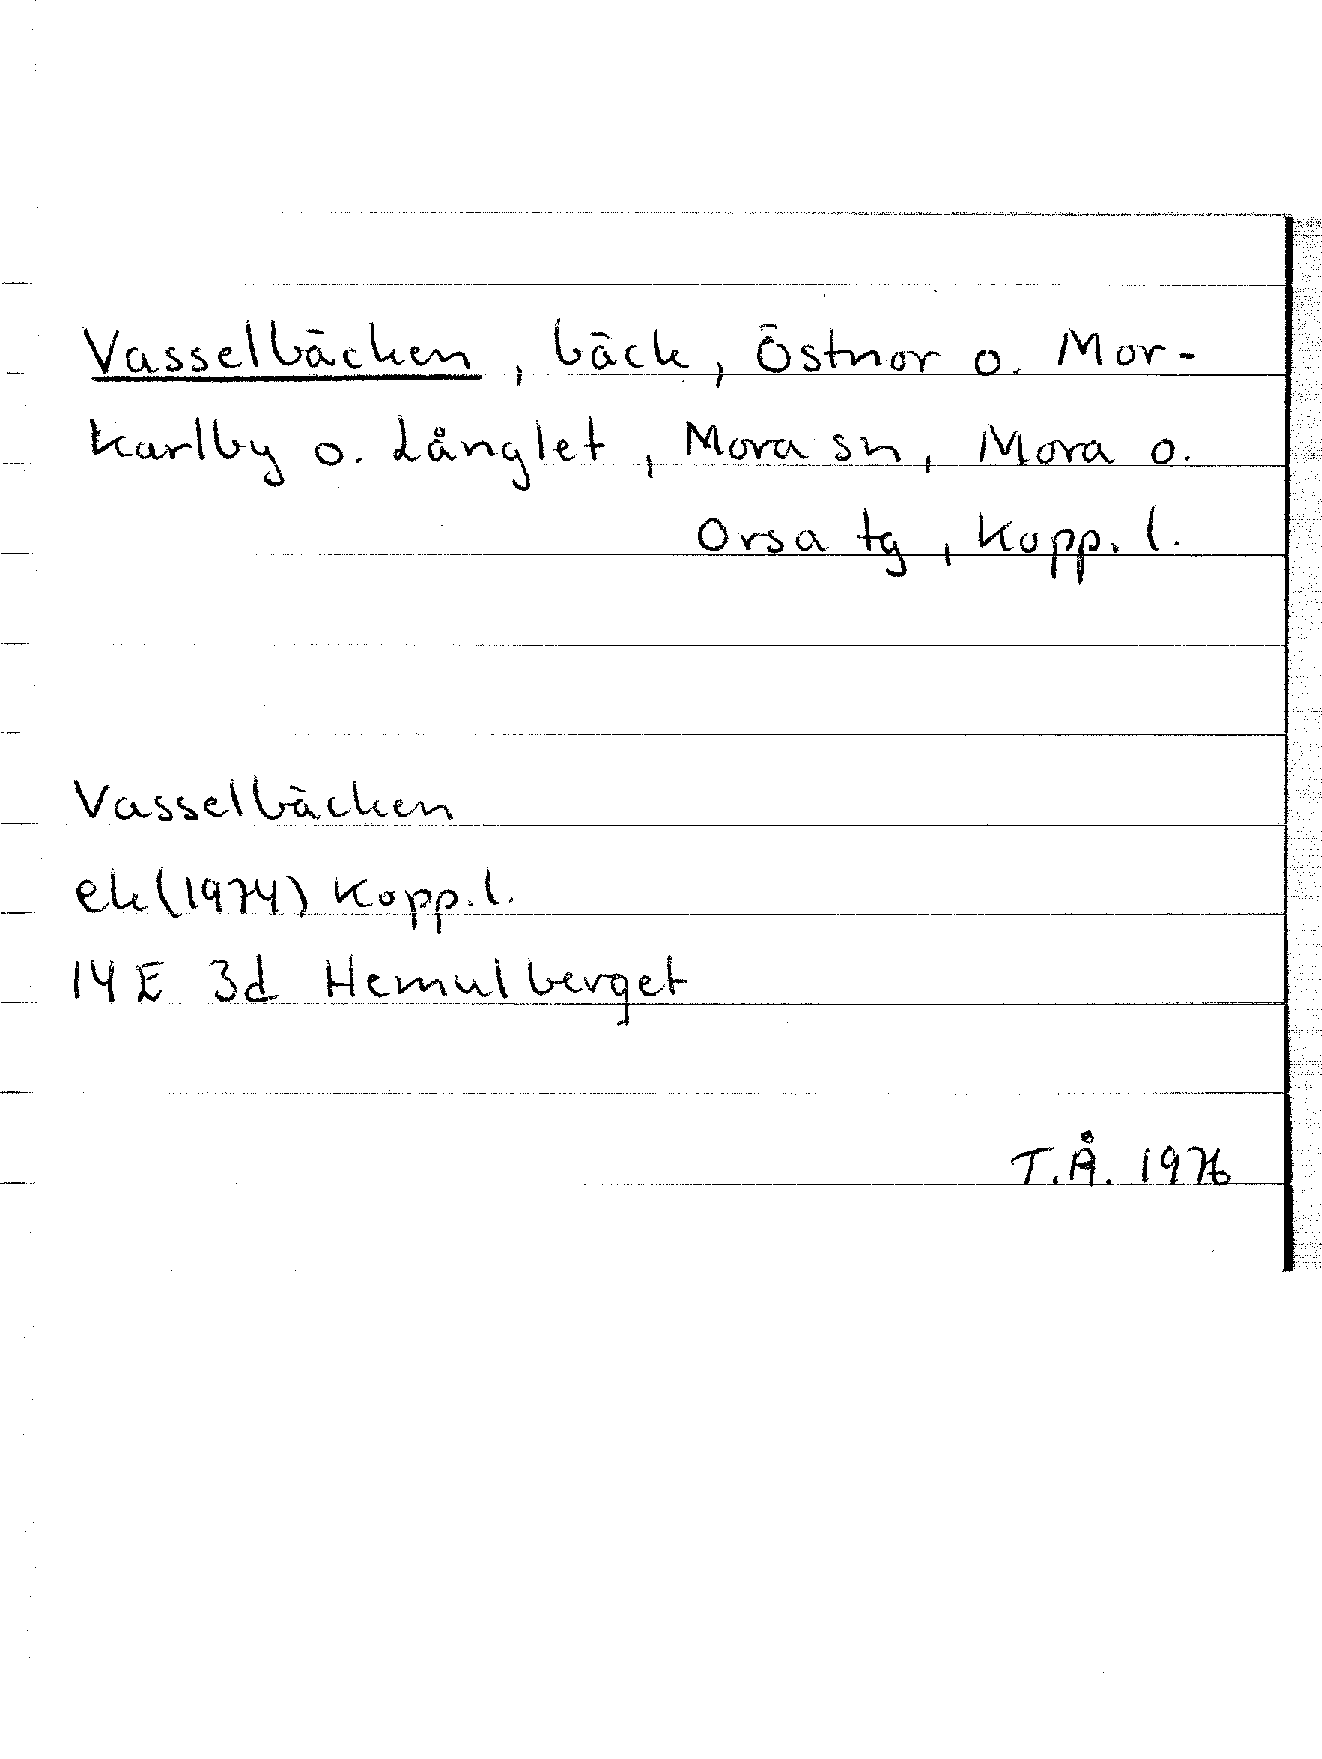 Vasselbäcken, bäck, Östnor o. Mor-
karlby o. Långlet, Mora sn, Mora o.
Orsa tg, Kopp. l.
Vasselbäcken
ek(1974) Kopp. l.
14 E 3d Hemulberget
T.Å. 1976